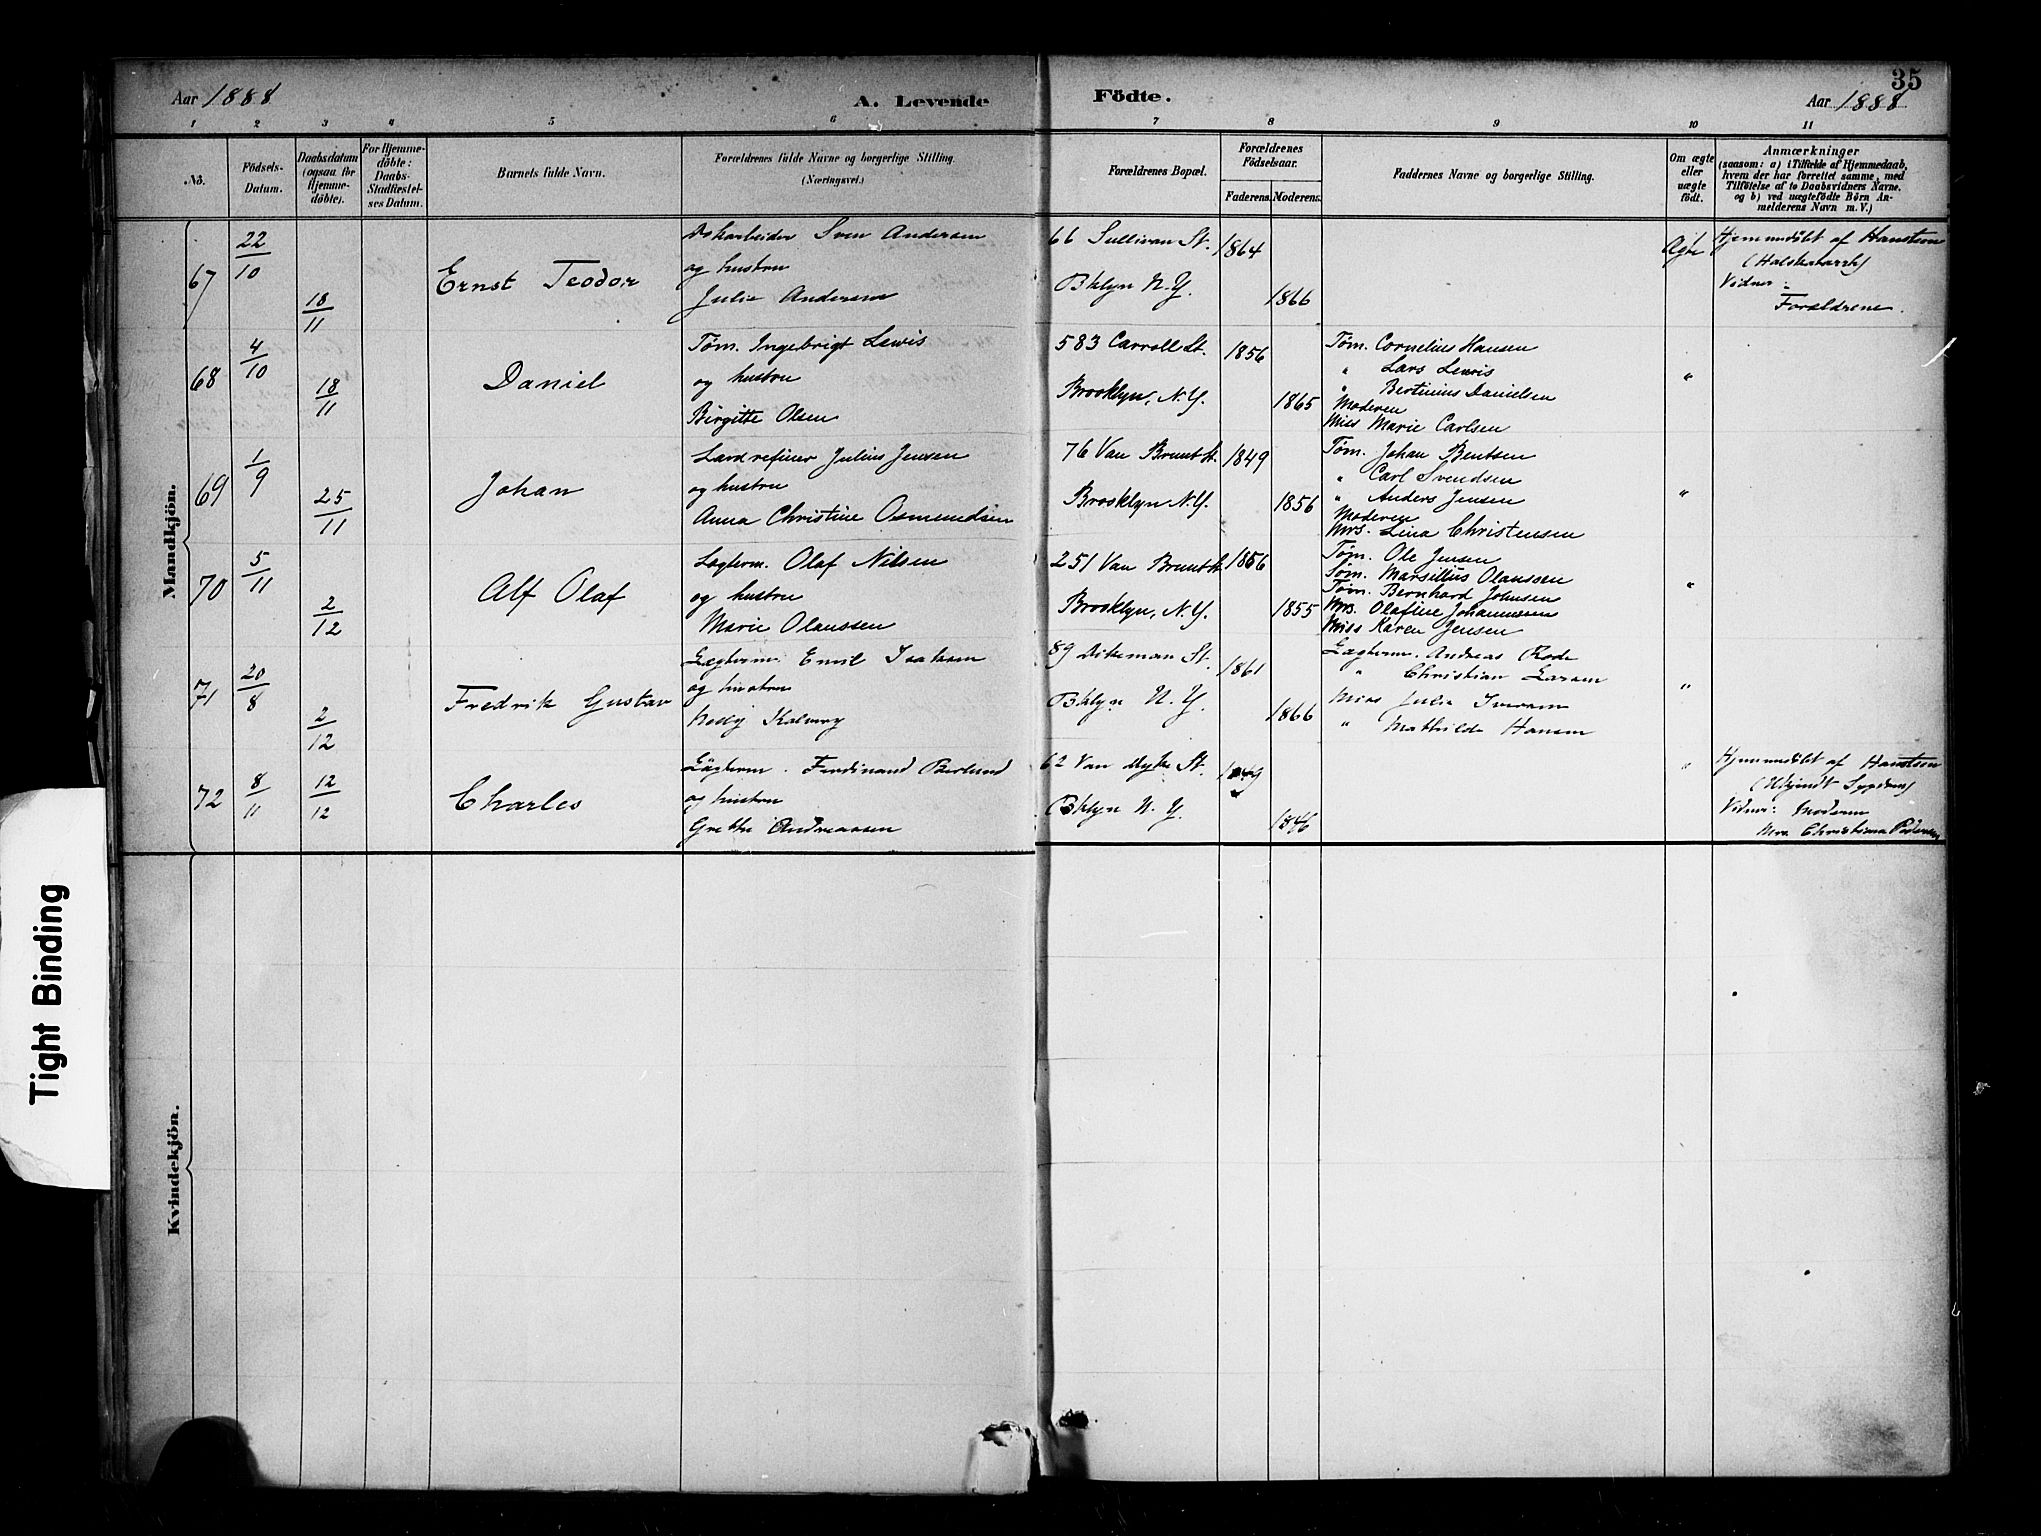 35
Aar 1888
A. Levende
Födte.
Aar 1888
1 2 3 4 5 6 7 8 9 10 11
No.
Födsels-Datum.
Daabsdatum (ogsaa for Hjemme-döbte).
For Hjemme-döbte: Daabs-Stadfæstel-ses Datum.
Barnets fulde Navn.
Forældrenes fulde Navne og borgerlige Stilling. (Næringsvei.)
Forældrenes Bopæl.
Forældrenes Födselsaar.
Faderens. Moderens.
Faddernes Navne og borgerlige Stilling.
Om ægte eller uægte födt.
Anmærkninger
(saasom: a) i Tilfælde af Hjemmedaab, hvem der har forrettet samme, med Tilföielse af to Daabsvidners Navne, og b) ved uægtefödte Börn An-melderens Navn m. V.)
Mandkjön.
67
22/10
18/11
Ernst Teodor
Dokarbeider Sven Andersen
og hustru
Julie Andersen
66 Sullivan St.
Bklyn N.Y.
1864
1866
Ægte
Hjemmedöbt af Hanstein
(Halskatarrh)
Vidner:
Forældrene.
68
4/10
18/11
Daniel
Tøm. Ingebrigt Lewis
og hustru
Birgitte Olsen
583 Carroll St.
Brooklyn, N.Y.
1856
1865
Tøm. Cornelius Hansen
" Lars Lewis
" Bertinius Danielsen
Moderen
Miss Marie Carlsen
"
69
1/9
25/11
Johan
Lardrefiner Julius Jensen
og hustru
Anna Christine Osmundsen
76 Van Brunt st.
Brooklyn N.Y.
1849
1856
Tøm. Johan Bentsen
" Carl Svendsen
" Anders Jensen
Moderen
Mrs. Lina Christensen
"
70
5/11
2/12
Alf Olaf
Lægterm. Olaf Nilsen
og hustru
Marie Olaussen
251 Van Brunt st.
Brooklyn, N.Y.
1856
1855
Tøm. Ole Jensen
Tøm. Marsillius Olaussen
Tøm. Bernhard Johnsen
Mrs. Olafine Johannessen
Miss Karen Jensen
"
71
20/8
2/12
Fredrik Gustav
Lægterm. Emil Isaksen
og hustru
89 Dikeman St.
Bklyn N.Y.
1861
1866
Lægterm. Andreas Rode
" Christian Larsen
Miss Julia Iversen
" Mathilde Hansen
"
72
8/11
12/12
Charles
Lægterm. Ferdinand Berlund
og hustru
Grethe Andreassen
62 Van Dyke St.
Bklyn N.Y.
1849
1846
"
Hjemmedöbt af Hanstein
Vidner: Moderen
Mrs Christiana Pedersen
Kvindekjön.
Tight Binding